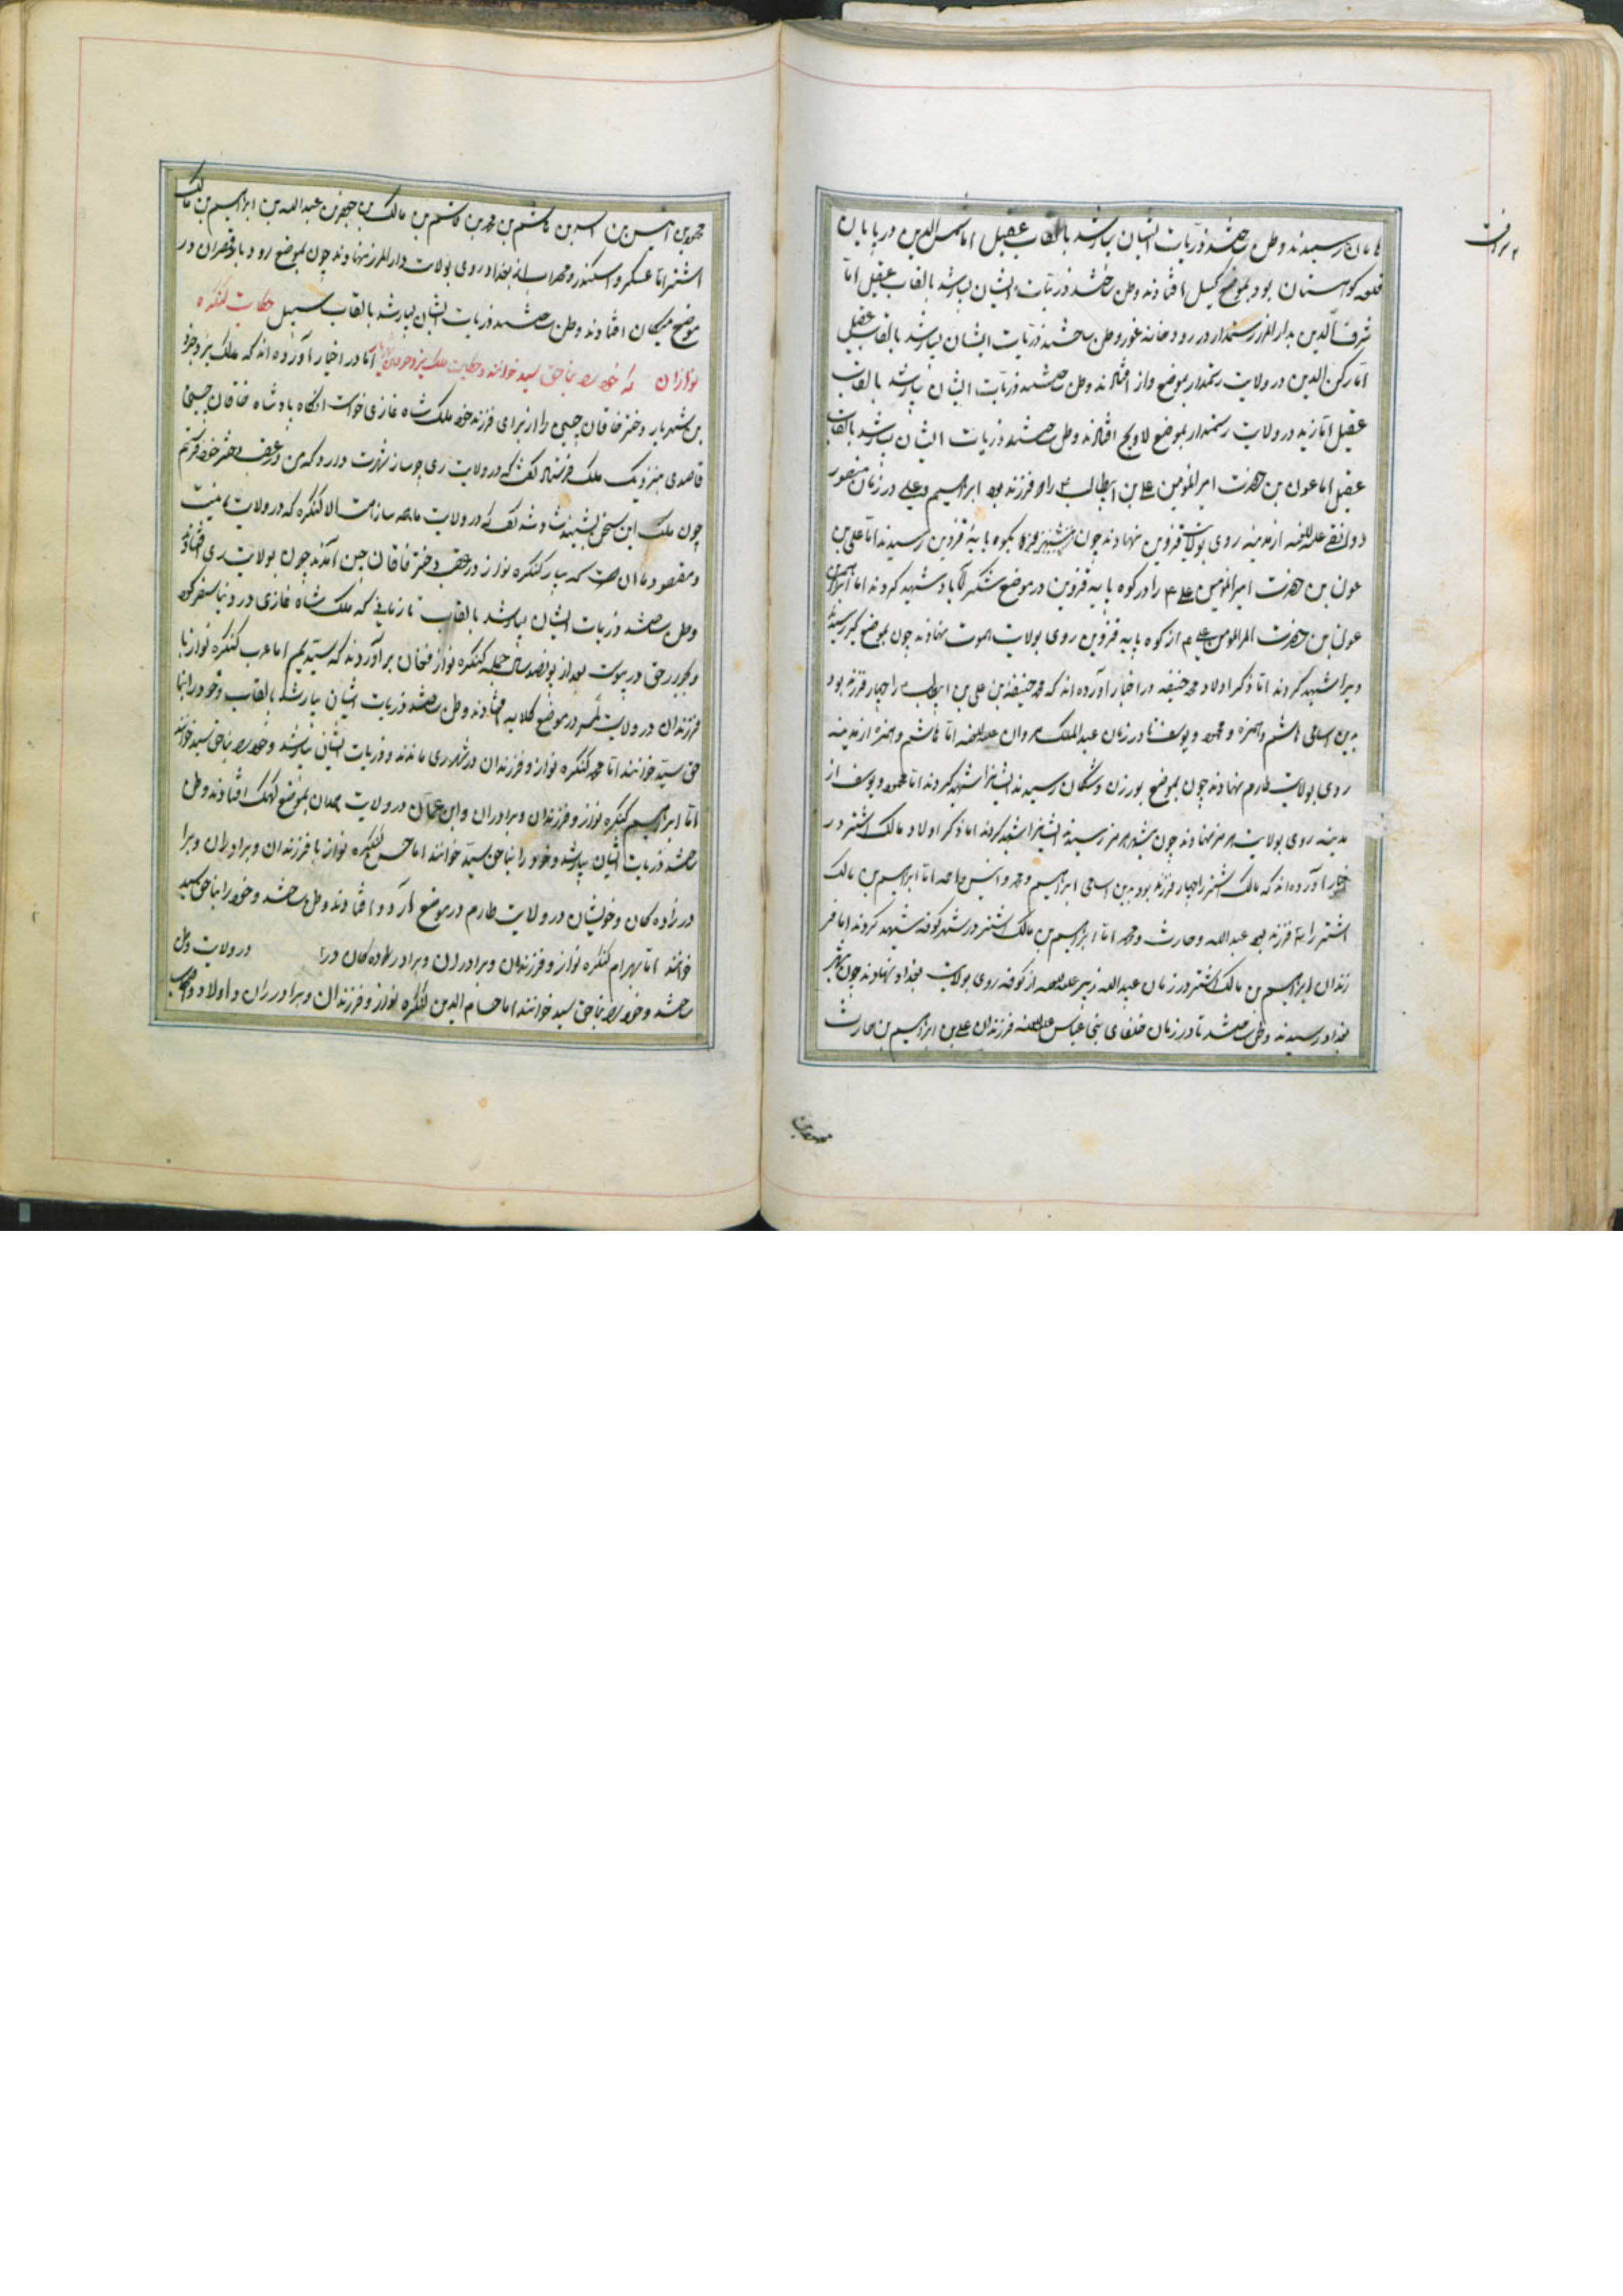 رسیدند وطن ساختند ذریات ایشان بسیار شد بالقاب عقیل اما شمس الدین در پایان
قلعه کوهستان بود بموضع کسیل افتادند وطن ساختند ذریات ایشان بسیار شد بالقاب عقیل اما
شرف الدین بدار المرز رستمدار در رودخانه غور وطن ساختند ذریات ایشان بسیار شد بالقاب عقیل
اما رکن الدین در ولایت رستمدار بموضع واز افتادند وطن ساختند ذریات ایشان بسیار شد بالقاب
عقیل اما زید در ولایت رستمدار بموضع لاویج افتادند وطن ساختند ذریات ایشان بسیار شد بالقاب
عقیل اما عون بن حضرت امیر المؤمنین علی بن ابیطالب را دو فرزند بود ابراهیم و علی در زمان منصور
دوانقی علیه اللعنه از مدینه روی بولایت قزوین نهادند چون بکوه پایه قزوین رسیدند اما علی بن
عون بن حضرت امیر المؤمنین علی را در کوه پایه قزوین در موضع شهید کردند اما ابراهیم بن
عون بن حضرت امیر المؤمنین علی از کوه پایه قزوین روی بولایت الموت نهادند چون بموضع رسید
ویرا شهید کردند اما ذکر اولاد محمد حنیفه در اخبار آورده اند که محمد حنیفه بن علی بن ابیطالب را چهار فرزند بود
بدین اسامی هاشم و حمزه و محمود و یوسف تا در زمان عبد الملک مروان علیه اللعنه اما هاشم و حمزه از مدینه
روی بولایت طارم نهادند چون بموضع بورزن وشکان رسیدند ایشانرا شهید کردند اما محمود و یوسف از
مدینه روی بولایت هرمز نهادند چون بشهر هرمز رسیدند ایشانرا شهید کردند اما ذکر اولاد مالک اشتر در
اخبار آورده اند که مالک اشتر را چهار فرزند بود بدین اسامی ابراهیم و محمد و انس و احمد اما ابراهیم بن مالک
اشتر را سه فرزند بود عبد الله و حارث و محمد اما ابراهیم بن مالک اشتر در شهر کوفه شهید کردند اما فر
زندان ابراهیم بن مالک اشتر در زمان عبد الله زبیر علیه اللعنه از کوفه روی بولایت بغداد نهادند چون بشهر
بغداد رسیدند وطن ساختند تا در زمان خلفای بنی عباس علیه اللعنه فرزندان علی بن ابراهیم بن حارث
محمود بن انس بن اسد بن هاشم بن محمد بن قاسم بن مالک بن جعفر بن عبد الله بن ابراهیم بن مالک
اشتر اما عسکر و اسکندر و محراب از بغداد روی بولایت دار المرز نهادند چون بموضع رودبار قصران در
موضع میگان افتادند وطن ساختند ذریات ایشان بسیار شد بالقاب سبیل حکایت کنکره
نوازان که خود را بناحق سید خوانند و حکایت ملک یزدجرد اما در اخبار آورده اند که ملک یزدجرد
بن شهریار دختر خاقان چین را از برای فرزند خود ملک شاه غازی خواست آنگاه پادشاه خاقان چین
قاصدی بنزدیک ملک فرستاد گفت که در ولایت ری چه ساز شهرت دارد که من در عقب دختر خود فرستم
چون ملک این سخن بشنید گفت که در ولایت ما همه ساز است الا کنکره که در ولایت ما نیست
و مقصود ما آن است که سیار کنکره نواز در عقب دختر خاقان چین آمدند چون بولایت ری افتادند
وطن ساختند ذریات ایشان بسیار شد بالقاب تا زمانی که ملک شاه غازی در دنیا سفر کرد
و بجوار حق در پیوست بعد از پانصد سال جمله کنکره نواز فغان برآوردند که سیدیم اما عرب کنکره نواز با
فرزندان در ولایت در موضع کلایه افتادند وطن ساختند ذریات ایشان بسیار شد بالقاب و خود را بنا
حق سید خوانند اما محمد کنکره نواز و فرزندان در شهر ری ماندند و ذریات ایشان بسیار شد و خود را بناحق سید خوانند
اما ابراهیم کنکره نواز و فرزندان و برادران و ابن عمان در ولایت بموضع کهک افتادند وطن
ساختند ذریات ایشان بسیار شد و خود را بناحق سید خوانند اما حسن کنکره نواز با فرزندان و برادران و برا
در زاده گان و خویشان در ولایت طارم در موضع افتادند وطن ساختند و خود را بناحق سید
خوانند اما بهرام کنکره نواز و فرزندان و برادران و برادر زاده گان در ولایت وطن
ساختند و خود را بناحق سید خوانند اما حسام الدین کنکره نواز و فرزندان و برادران و اولاد